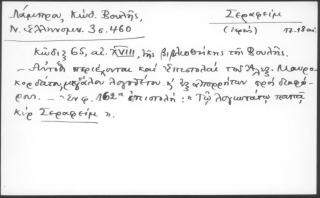 Λάμπρου, Κώδ. Βουλῆς,
Ν. Ἑλληνομν. 3 σ. 460
Σεραφείμ
(ἱερεὺς) 17-18 αἰ.
Κῶδιξ 65, αἰ. XVIII, τῆς βιβλιοθήκης τῆς Βουλῆς.
— Αὐτόθι περιέχονται καὶ ἐπιστολαὶ τοῦ Ἀλεξ. Μαυρο-
κορδάτου, μεγάλου λογοθέτου ἐξ ἀπορρήτων πρὸς διαφό-
ρους. — Ἐν φ. 162α ἐπιστολή: «Τῷ λογιωτάτῳ παπᾷ
κὺρ Σεραφείμ».